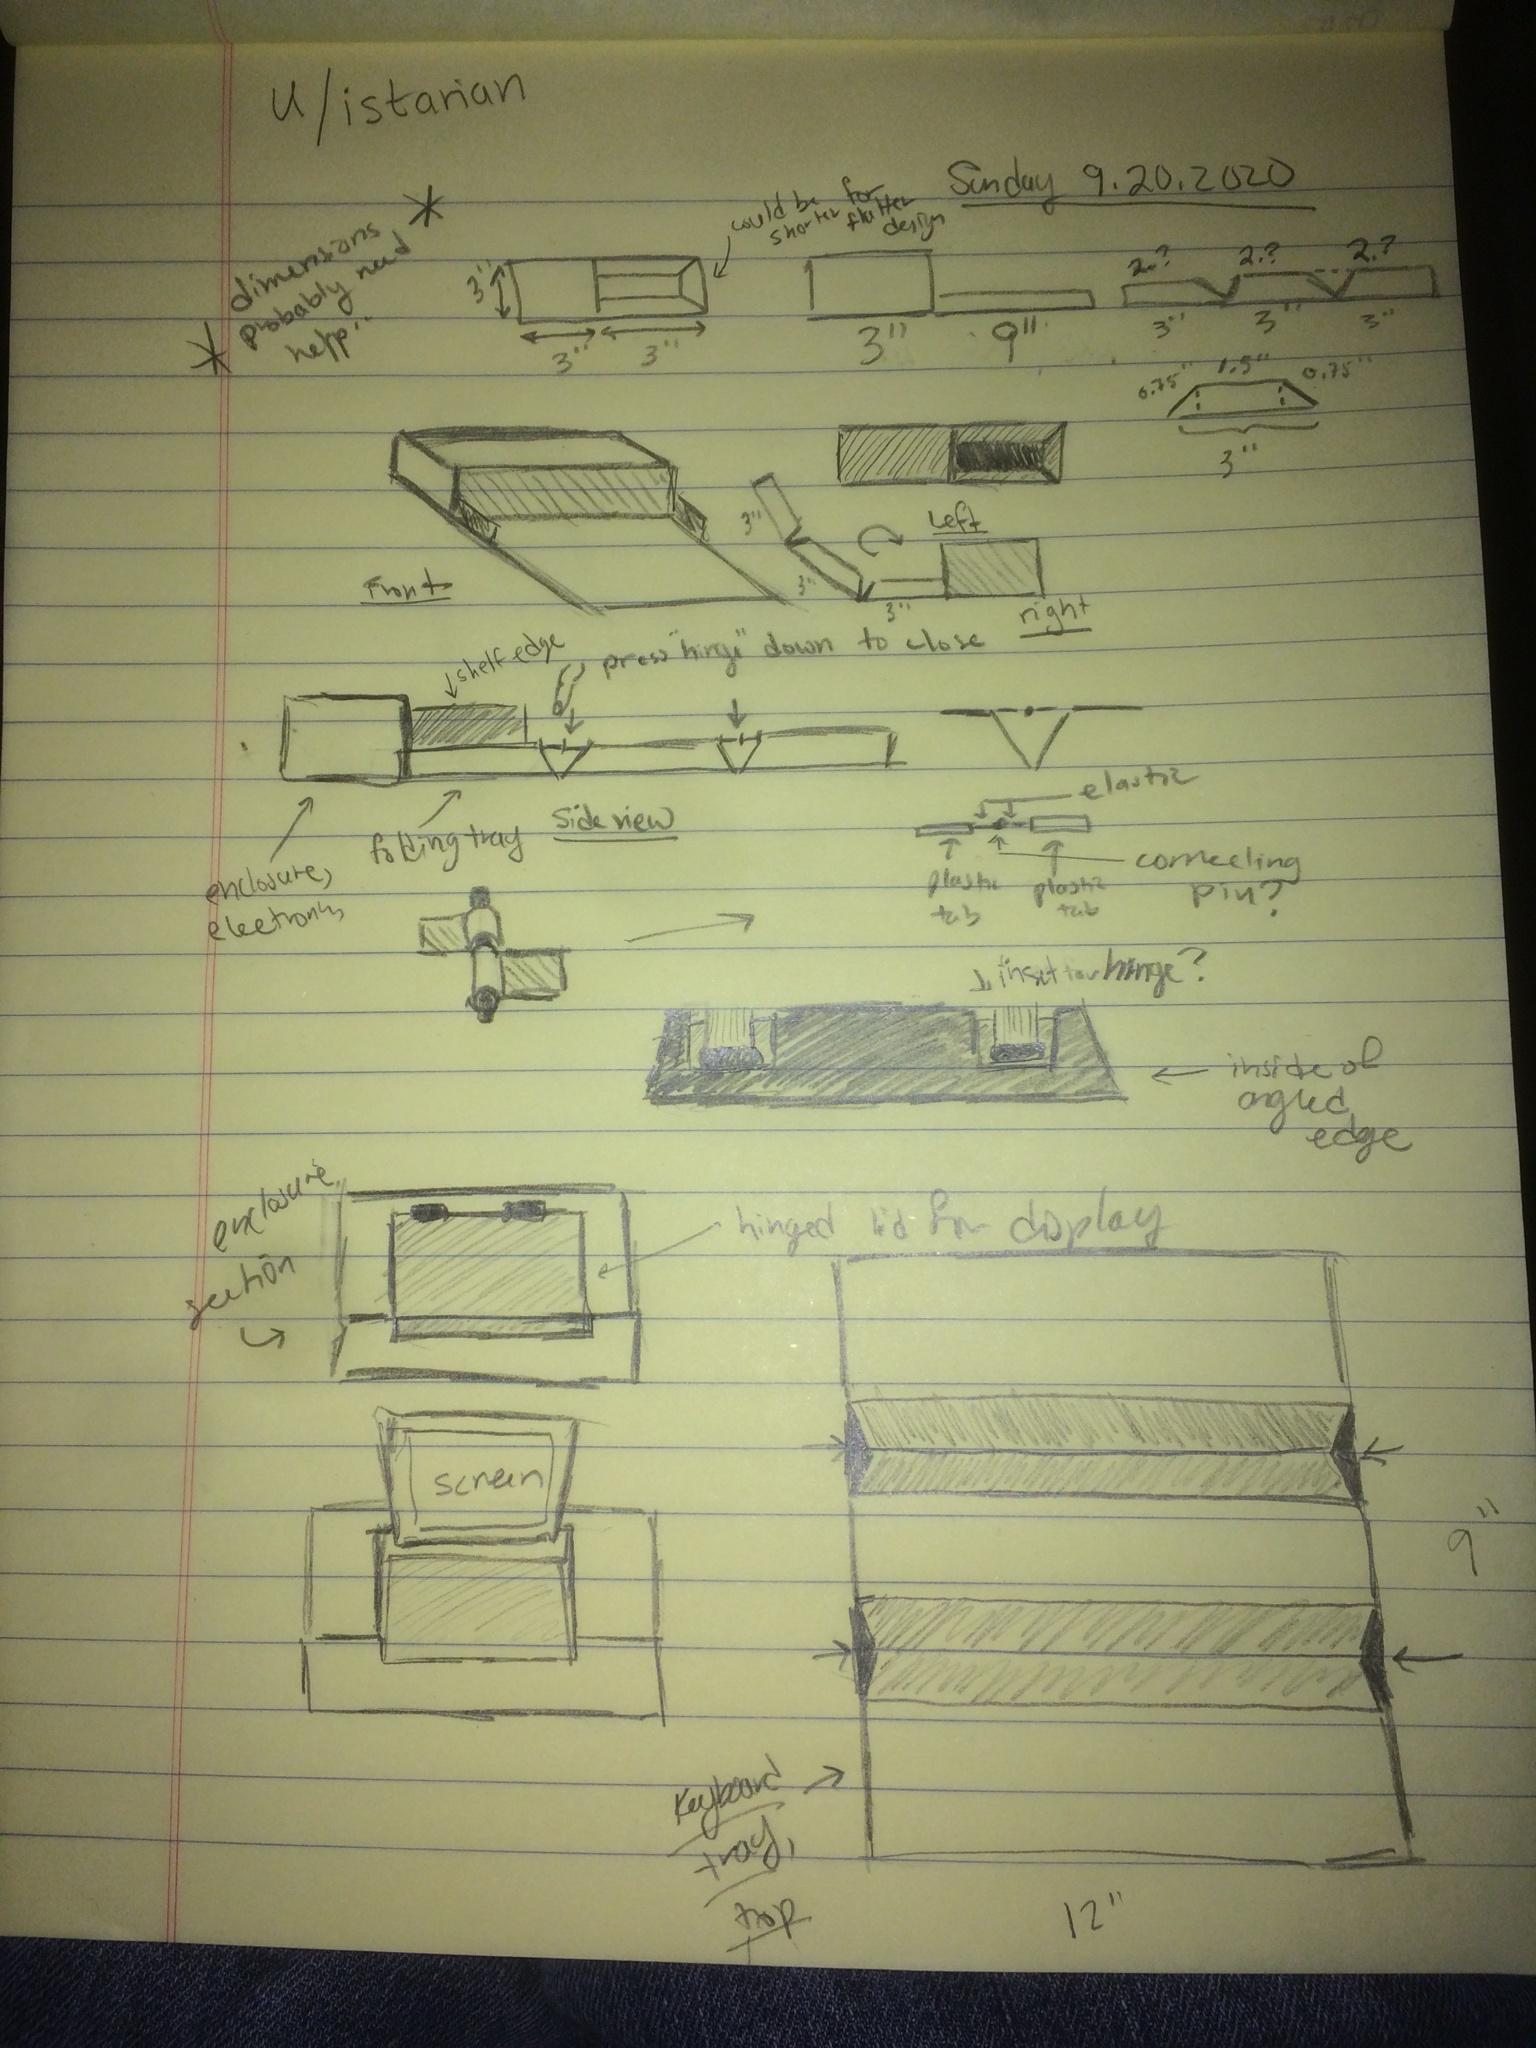 u/istarian
Sunday 9.20.2020
* dimensions
probably need
* help..
could be
shorter for
flatter
design
3"
3" 3"
3" 9"
2.? 2.? 2.?
3" 3" 3"
0.75" 1.5" 0.75"
3"
Front
3"
3"
3"
Left
right
shelf edge
press "hinge" down to close
enclosure,
electronics
folding tray
Side view
elastic
plastic
tab
plastic
tab
connecting
pin?
inset for hinge?
inside of
angled
edge
enclosure
section
hinged lid for display
screen
9"
Keyboard
tray,
top
12"